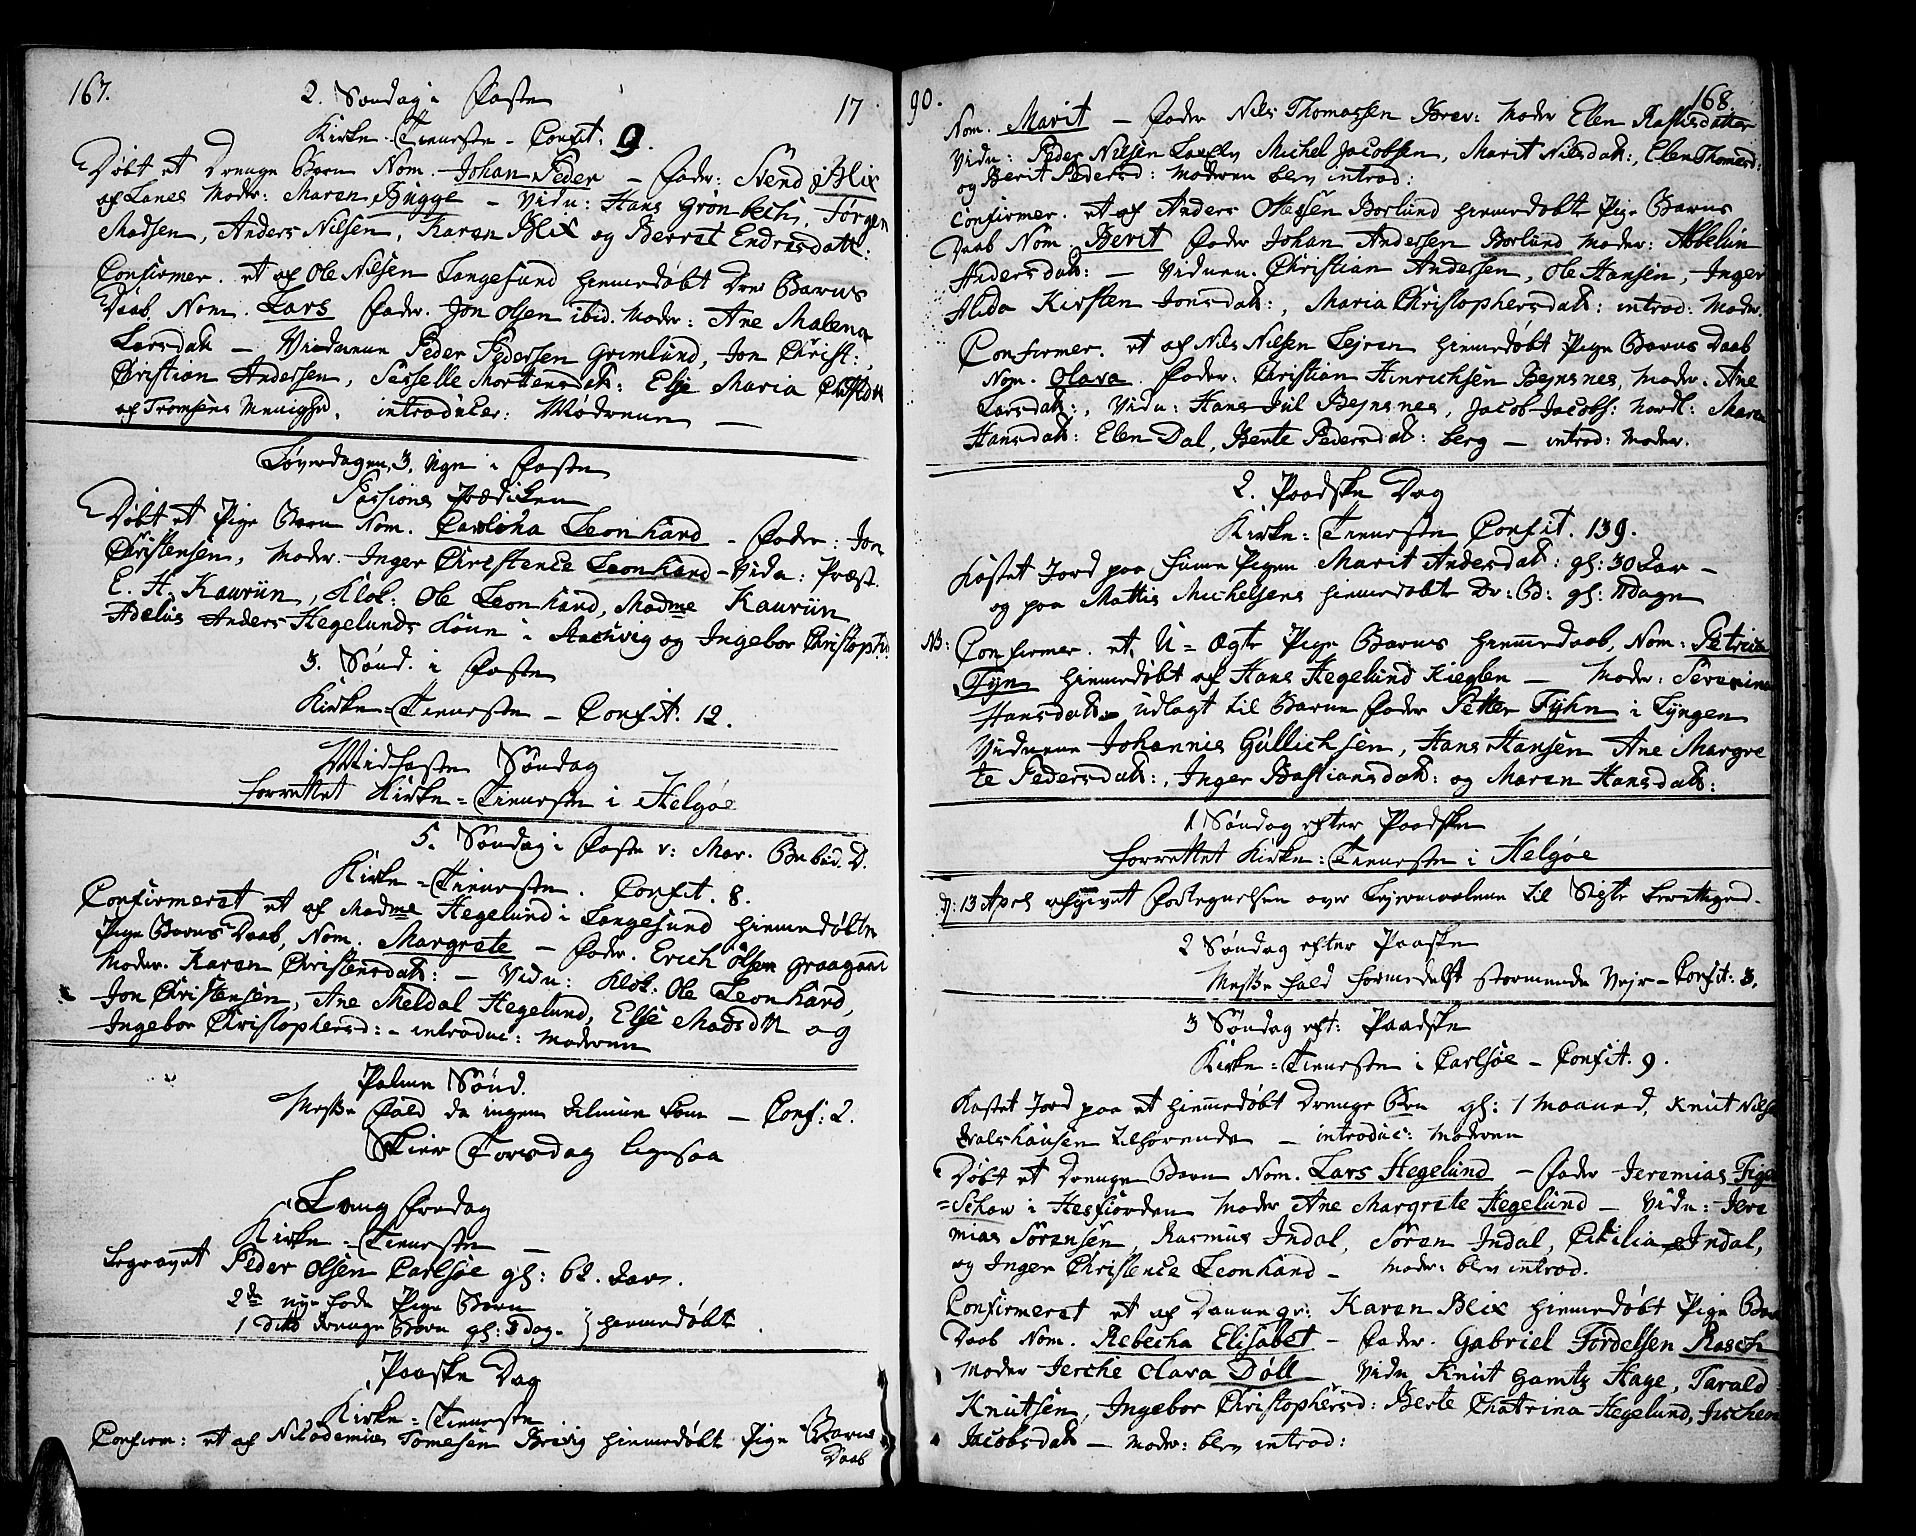 167.
2. Søndag i Faste
17
Kirke-Tieneste - Confit: 9.
Døbt et Drenge Barn Nom. Johan Peder - Fader: Svend Blix
af Lanes Moder: Maren Bygge - Vidn: Hans Grönbech, Jörgen
Madsen, Anders Nilsen, Karen Blix og Berret Endresdatt:
Confirmer. et af Ole Nilsen Langesund hiemedøbt Dre Barns
Daab, Nom. Lars Fader. Jon Olsen ibid. Moder: Ane Malena
Larsdatt - Vidnerne Peder Pedersen Grimlund, Jon Christ:,
Christian Andersen, Sisselle Mortensdatt: Else Maria
af Tromsens Menighd. introducer: Moderen
Løverdagen, 3. Uge i Faste
Passions Prædiken
Døbt et Pige Barn Nom. Carolina Leonhard - Fader: Jon
Christensen, Moder. Inger Christence Leonhard - Vidn: Præst.
E. H. Kaurin, Klok: Ole Leonhard, Madme Kaurin
Adelus Anders Hegelunds Kone i og Ingebor Christophd:
3. Sønd. i Faste
Kirke-Tieneste - Confit. 12.
Midfaste Søndag
forrettet Kirke-Tieneste i Helgøe
5. Søndag i Faste v: Mar. Bebud. D.
Kirke-Tieneste. Confit. 8.
Confirmeret et af Madme Hegelund i Langesund hiemedøbte
Pige Barns Daab, Nom. Margrete - Fader. Erich Olsen Graagaard
Moder. Karen Christensdatt: - Vidn: Klok: Ole Leonhard,
Jon Christensen, Ane Meldal Hegelund, Else Madsdtt og
Ingebor Christophersd: - introduc: Moderen
Palme Sønd.
Messe Fald da ingen Almue kom - Conf: 2.
Skier Torsdag ligesaa
Lang Fredag
Kirke-Tieneste -
begravet Peder Olsen Carlsöe gl: 62. Aar.
2de nye fødte Pige Børn
1 dito Drenge Barn gl: 8 dag. } hiemedøbte
Paaske Dag
Kirke-Tieneste
Confirm: et af Nicodemus Tomesen Brevig hiemedøbt Pige Barns
Daab
90.
168.
Nom. Marit - Fader Nils Thomassen Brev: Moder Elen Rastisdatter
Vidn: Peder Nilsen Michel Jacobsen, Marit Nilsdatt:, Elen Thomesd:
og Berit Pedersd: Moderen blev introd:
Confirmer. et af Anders Olsen Borlund hiemedøbt Pige Barns
Daab Nom Berit Fader Johan Andersen Borlund Moder: Abbelun
Andersdatt: - Vidnen. Christian Andersen, Ole Hansen, Inger
Alida Kirsten Jonsdatt:, Maria Christophersdatt: introd: Moder.
Confirmer. et af Nils Nilsen Lejren hiemedøbt Pige Barns Daab
Nom. Olava. Fader: Christian Hinrichsen Bejnsnes, Moder. Ane
Larsdatt:, Vidn: Hans Jul Bejnsnes, Jacob Jacobs: Nordl: Maren
Hansdatt: Elen Dal, Berte Pedersdatt: berg - introd: Moder.
2. Paaske Dag
Kirke-Tieneste Confit. 139.
Kastet Jord paa Pigen Marit Andersdatt: gl: 30 Aar -
og paa Mattis Michelsens hiemedøbt Dr: B: gl: 11 Dage
NB: Confirmer. et U-Ægte Pige Barns hiemmedaab, Nom: Petrica
Fyn hiemedøbt af Hans Hegelund Kieglen - Moder: Serenina
Hansdatt. udlagt til Barne Fader Petter Fyhn i Lyngen
Vidnerne Johannis Gullichsen, Hans Hansen Ane Margre
te Pedersdatt:, Inger Bastiansdatt: og Maren Hansdatt:
1 Søndag efter Paaske
forrettet Kirke-Tieneste i Helgøe
D: 13 April afgivet Fortegnelsen over Lejermaalene til Sigte berettigend.
2 Søndag efter Paaske
Messe fald formedelst stormende Vejr - Confit: 3.
3 Søndag eft: Paaske
Kirke-Tieneste i Carlsøe - Confit. 9.
Kastet Jord paa et hiemmedøbt Drenge Brn gl: 1 Maaned, Knut Nilsen
Dalshausen tilhørende - introduc: Moderen
Døbt et Drenge Barn Nom. Lars Hegelund - Fader Jeremias Figen
=Schow i Hesfiorden Moder Ane Margrete Hegelund - Vidn: Jere
mias Sörensen, Rasmus Indal, Sören Indal, Cicilia Indal,
og Inger Christence Leonhard - Moder: blev introd.
Confirmeret et af Danneqv: Karen Blix hiemedøbt Pige Barns
Daab Nom. Rebecha Elisabet - Fader. Gabriel Tordelsen Rasch
Moder Jerche Olava Döll Vidn Knut Gamtz Hage, Tarald
Knutsen, Ingebor Christophersd: Berte Chatrina Hegelund,
Jacobsdatt - Moder: blev introd: